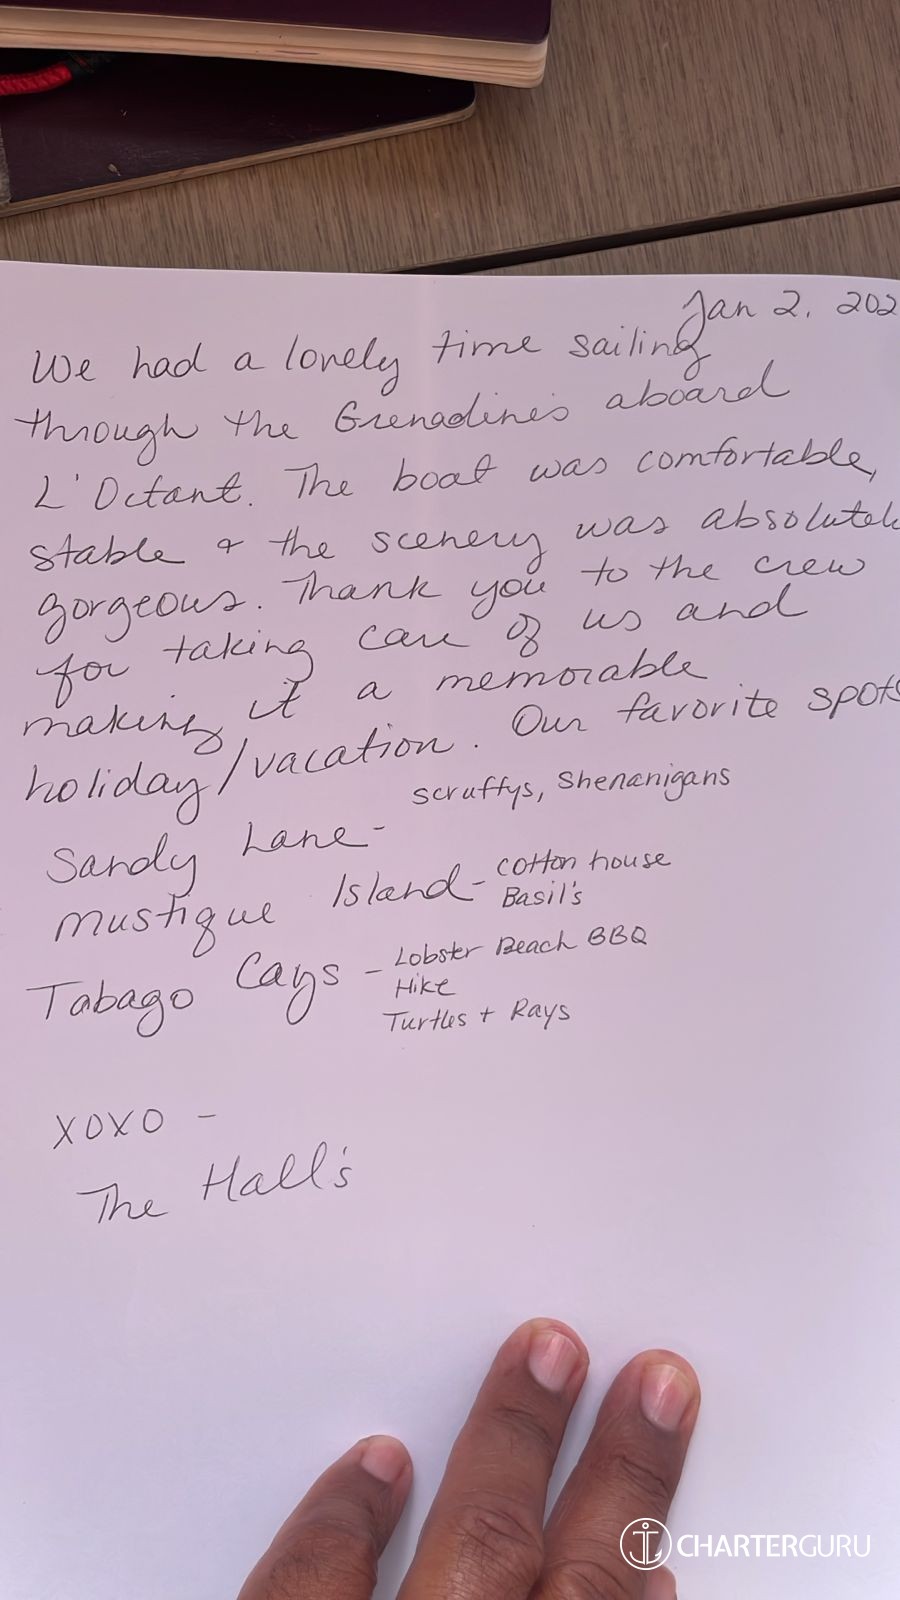 Jan 2, 202
We had a lovely time sailing
through the Grenadines aboard
L'Octant. The boat was comfortable,
stable & the scenery was absolutel
gorgeous. Thank you to the crew
for taking care of us and
making it a memorable
holiday/vacation. Our favorite spots
Sandy Lane - scruffys, Shenanigans
Mustique Island - cotton house
Basil's
Tabago Cays - Lobster Beach BBQ
Hike
Turtles + Rays
XOXO -
The Hall's
CHARTERGURU